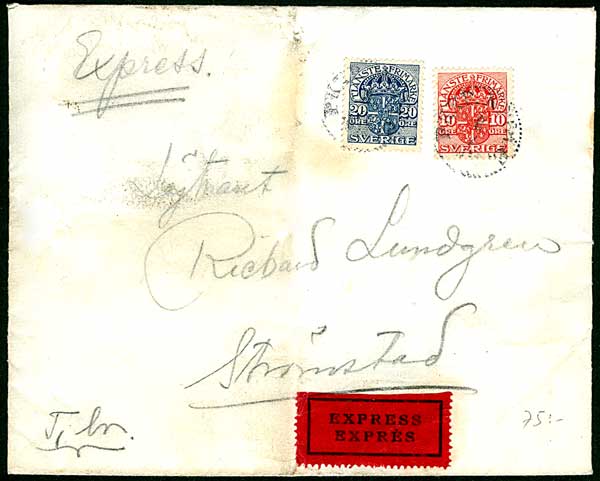 Express.
TJÄNSTEFRIMÄRKE
20 20
ÖRE ÖRE
SVERIGE
TJÄNSTEFRIMÄRKE
10 10
ÖRE ÖRE
SVERIGE
Löjtnant
Richard Lundgren
Strömstad
EXPRESS
EXPRÈS
75:-